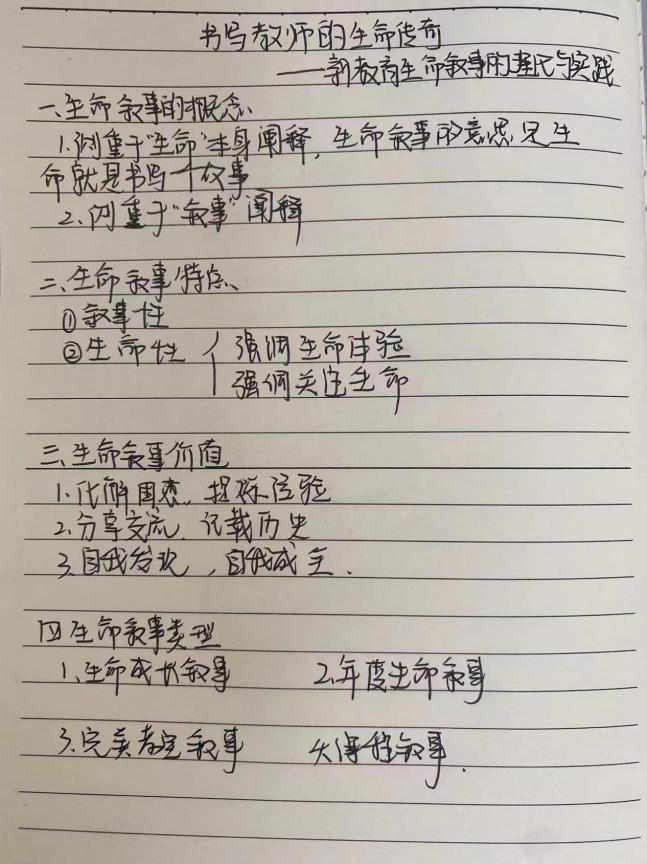 书写教师的生命传奇
——新教育生命叙事的理论与实践
一、生命叙事的概念
1.侧重于"生命"本身阐释,生命叙事的意思是生
命就是书写一个故事
2、侧重于"叙事"阐释
二、生命叙事特点
①叙事性
②生命性 强调生命体验
强调关注生命
三、生命叙事价值
1.化解困惑,提炼经验
2.分享交流,记载历史
3.自我发现,自我成全.
四生命叙事类型
1、生命成长叙事 2.年度生命叙事
3.完美教室叙事 叙事.